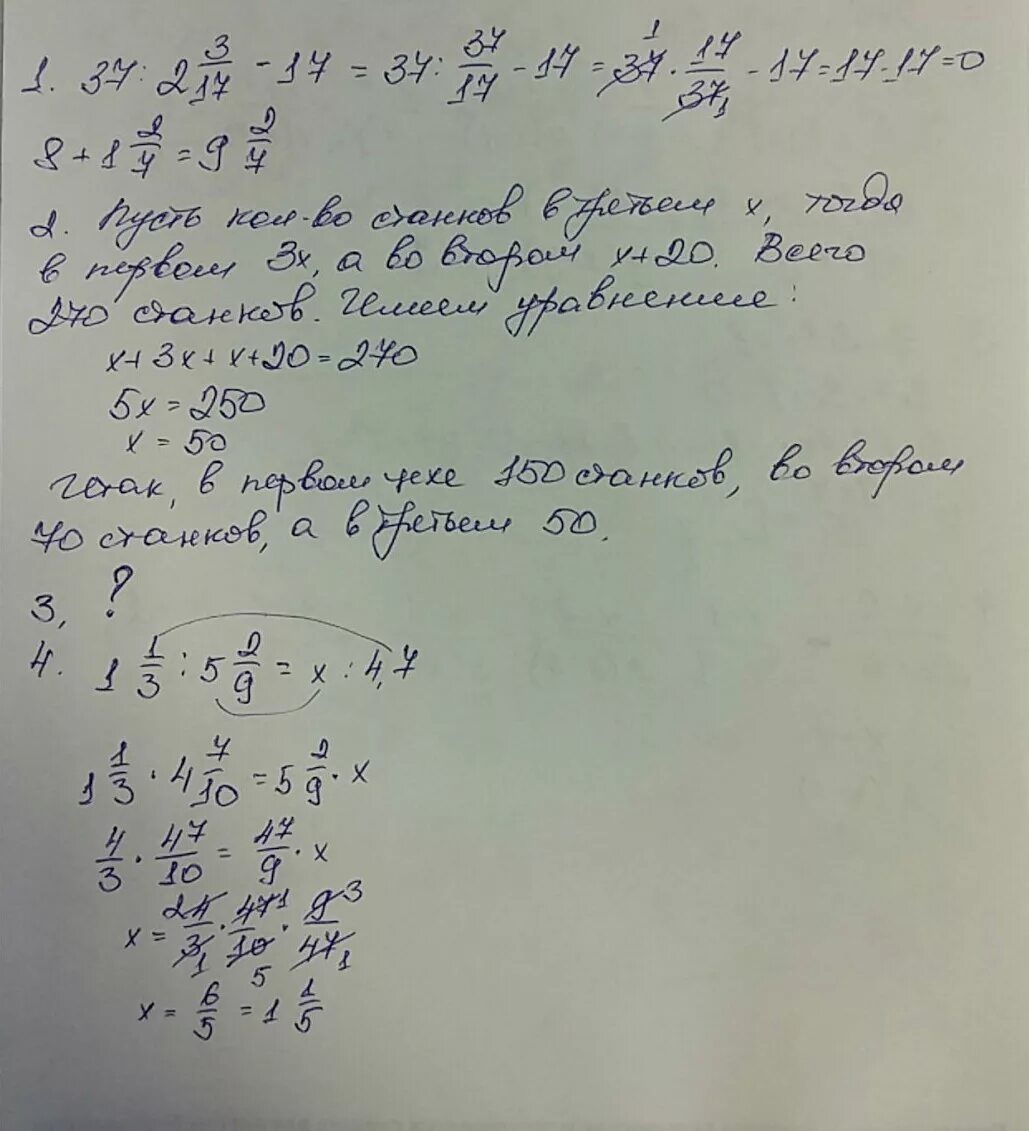 1. 37 : 2 3/17 - 17 = 37 : 37/17 - 17 = 37 · 17/37 - 17 = 17 - 17 = 0
8 + 1 2/7 = 9 2/7
2. Пусть кол-во станков в третьем x, тогда
в первом 3x, а во втором x+20. Всего
270 станков. Имеем уравнение:
x + 3x + x + 20 = 270
5x = 250
x = 50
Итак, в первом цехе 150 станков, во втором
70 станков, а в третьем 50.
3, ?
4. 1 1/3 : 5 2/9 = x : 4,7
1 1/3 · 4 7/10 = 5 2/9 · x
4/3 · 47/10 = 47/9 · x
x = 4/3 · 47/10 · 9/47
x = 6/5 = 1 1/5